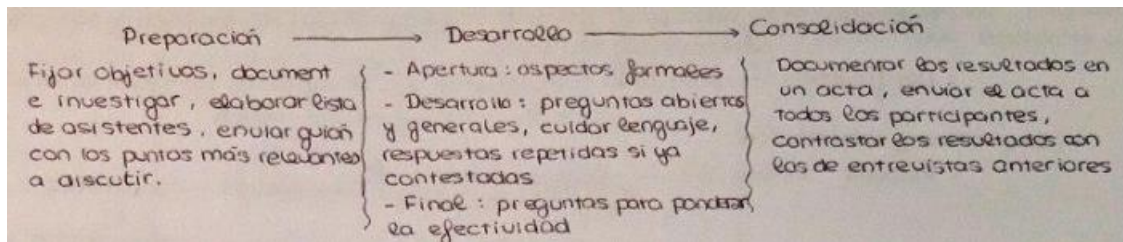 Preparación → Desarrollo → Consolidación
Fijar objetivos, document
e investigar, elaborar lista
de asistentes, enviar guión
con los puntos más relevantes
a discutir.
- Apertura: aspectos formales
- Desarrollo: preguntas abiertas
y generales, cuidar lenguaje,
respuestas repetidas si ya
contestadas
- Final: preguntas para ponderar
la efectividad
Documentar los resultados en
un acta, enviar el acta a
todos los participantes,
contrastar los resultados con
los de entrevistas anteriores